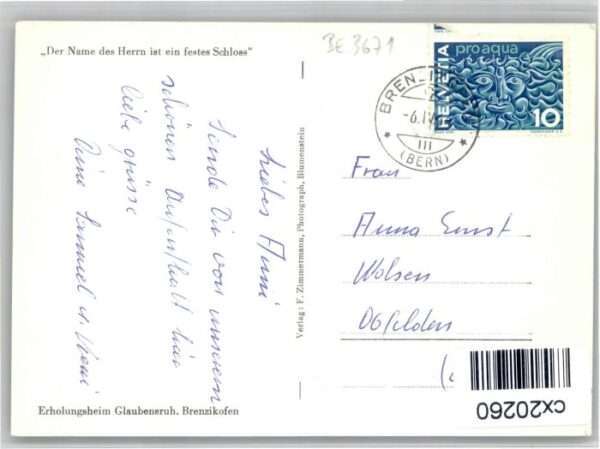 „Der Name des Herrn ist ein festes Schloss"
BE 3671
HELVETIA
pro aqua
10
BREN
-6.IV
III
(BERN)
Liebes Anni
Sende Dir von unserem
schönen Aufenthalt hier
liebe Grüsse
Verlag: F. Zimmermann, Photograph, Blumenstein
Frau
Anna Ernst
Obfelden
cx20260
Erholungsheim Glaubensruh, Brenzikofen